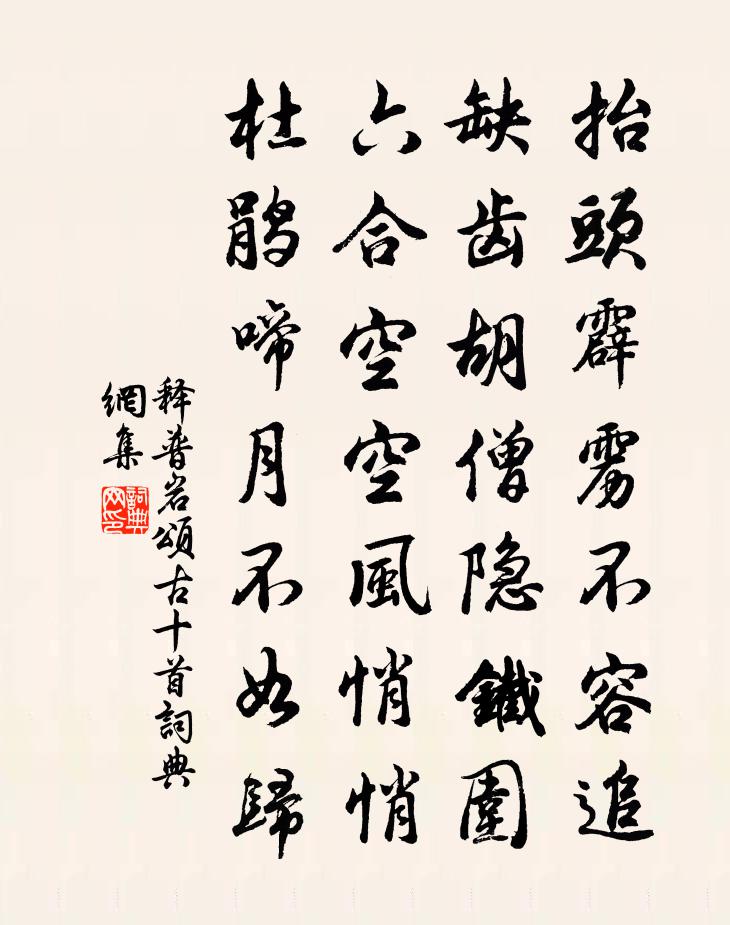 抬頭霹雳不容追
缺齿胡僧隐鐵圍
六合空空風悄悄
杜鹃啼月不如歸
释普岩頌古十首詞典
網集
詞典
网印